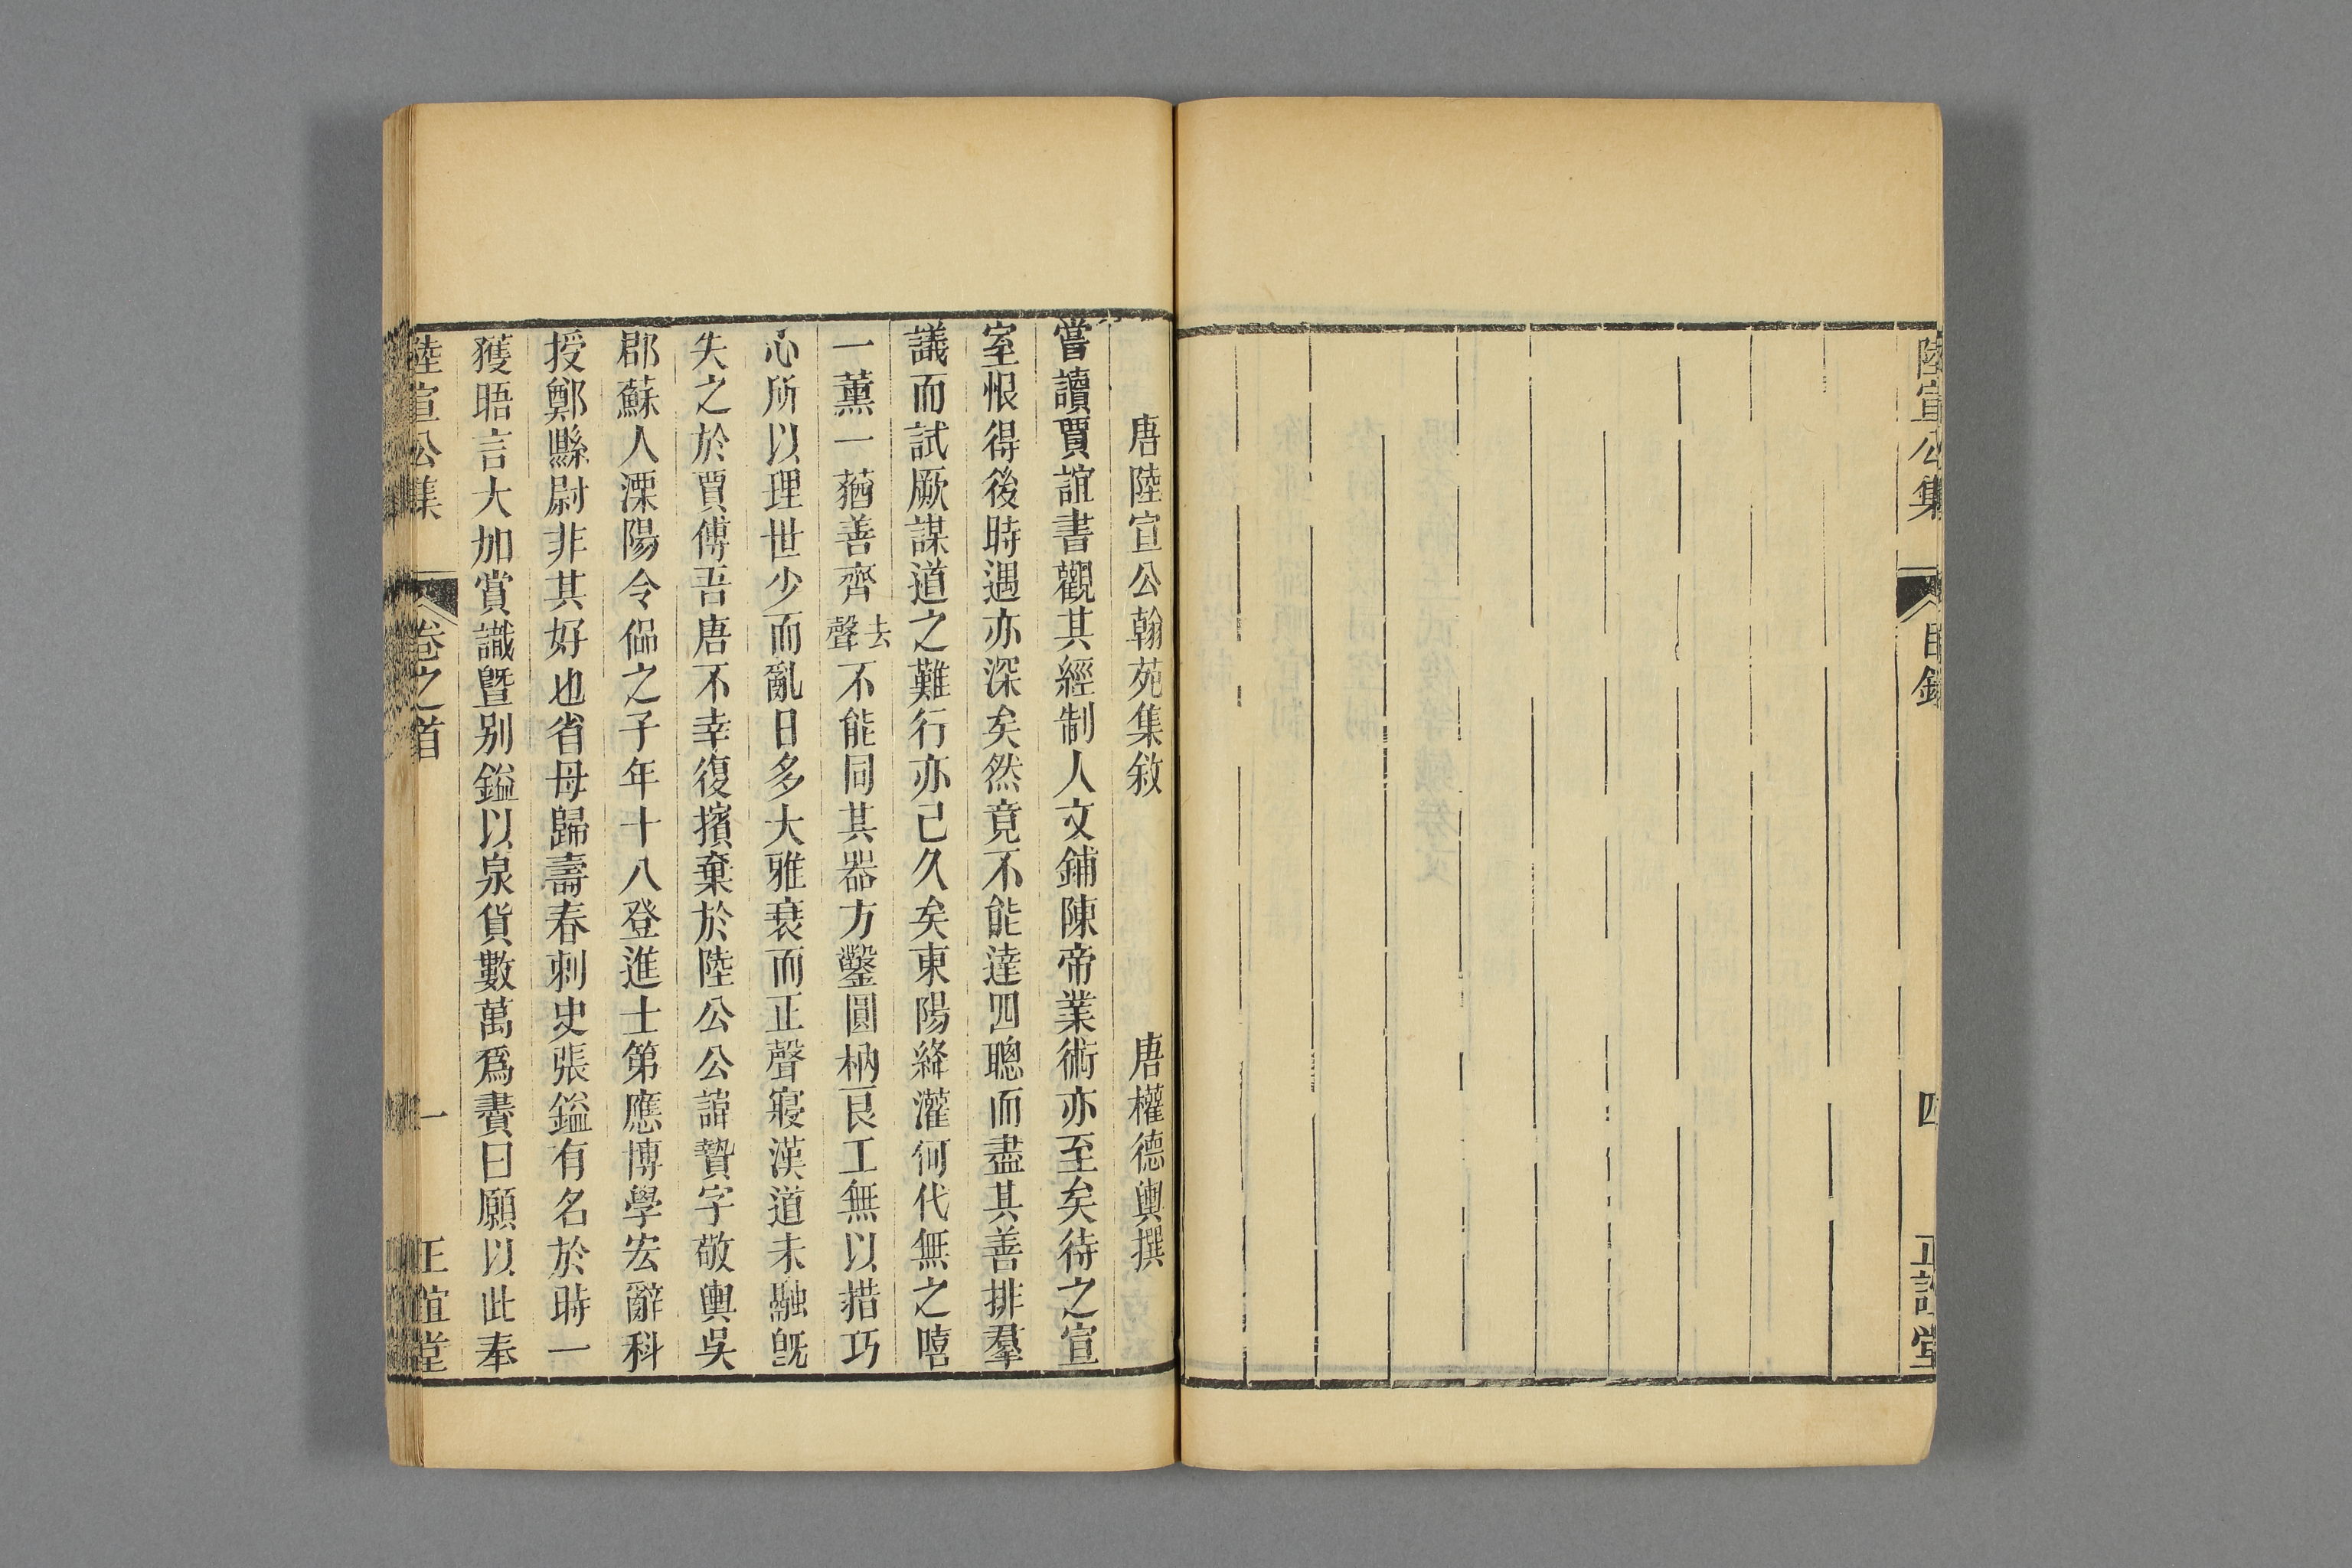 陸宣公集 目錄 四 正誼堂
唐陸宣公翰苑集敘 唐權德輿撰
嘗讀賈誼書觀其經制人文鋪陳帝業術亦至矣待之宣
室恨得後時遇亦深矣然竟不能達四聰而盡其善排羣
議而試厥謀道之難行亦已久矣東陽絳灌何代無之嘻
一薰一蕕善齊去聲不能同其器方鑿圓枘良工無以措巧
心所以理世少而亂日多大雅衰而正聲寢漢道未融旣
失之於賈傅吾唐不幸復擯棄於陸公公諱贄字敬輿吳
郡蘇人溧陽令偘之子年十八登進士第應博學宏辭科
授鄭縣尉非其好也省母歸壽春刺史張鎰有名於時一
獲晤言大加賞識暨別鎰以泉貨數萬爲賮曰願以此奉
陸宣公集 卷之首 一 正誼堂